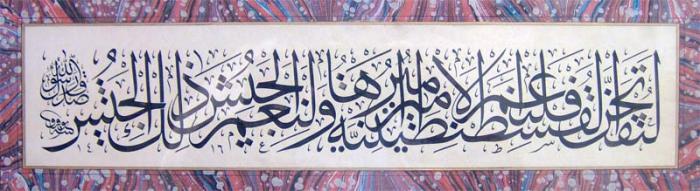 لتفتحن القسطنطينية فلنعم الأمير أميرها ولنعم الجيش ذلك الجيش
صدق رسول الله